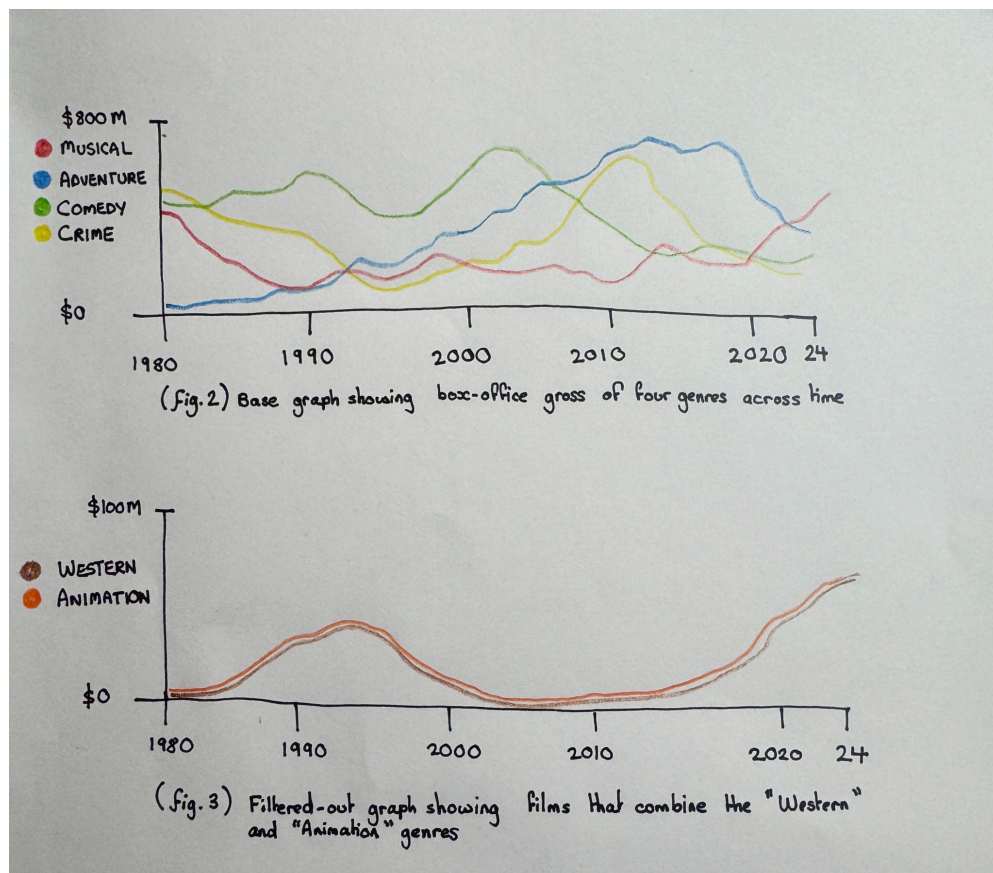 $800M
MUSICAL
ADVENTURE
COMEDY
CRIME
$0
1980 1990 2000 2010 2020 24
(fig.2) Base graph showing box-office gross of four genres across time
$100M
WESTERN
ANIMATION
$0
1980 1990 2000 2010 2020 24
(fig.3) Filtered-out graph showing films that combine the "Western"
and "Animation" genres